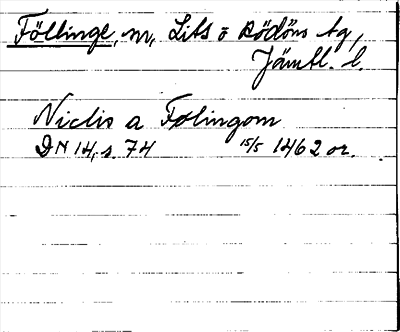 Föllinge, sn, Lits o Rödöns tg,
Jämtl. l.
Niclis a Folingom
DN 14, s. 74 15/5 1462 or.